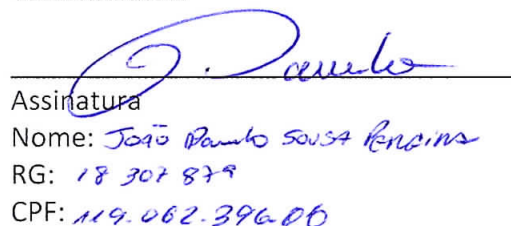 Assinatura
Nome: João Paulo Sousa Pereira
RG: 18 307 879
CPF: 119.062.396.06